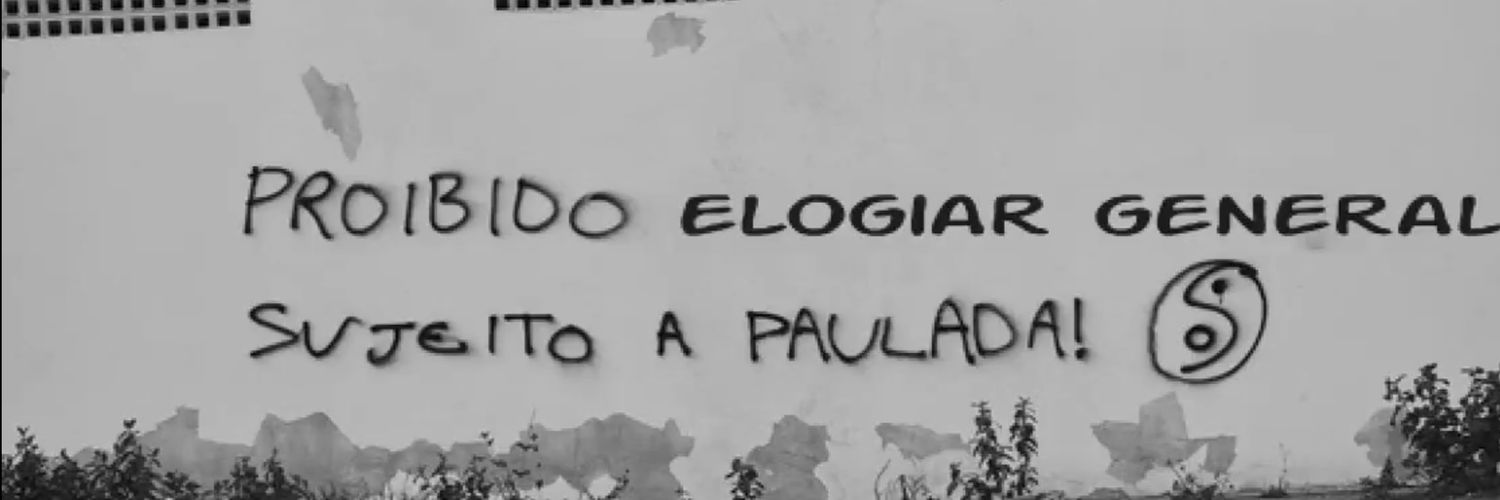 PROIBIDO ELOGIAR GENERAL
SUJEITO A PAULADA!